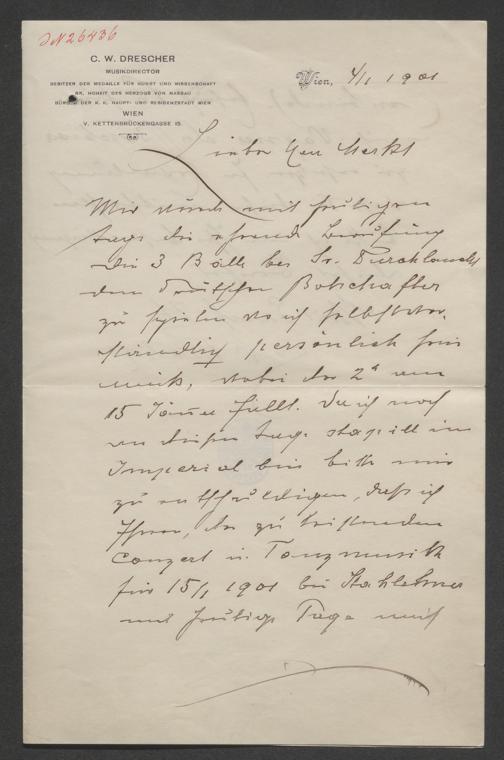 JN 26436
C. W. DRESCHER
MUSIKDIRECTOR
BESITZER DER MEDAILLE FÜR KUNST UND WISSENSCHAFT
SR. HOHEIT DES HERZOGS VON NASSAU
BÜRGER DER K. K. HAUPT- UND RESIDENZSTADT WIEN
WIEN
V. KETTENBRÜCKENGASSE 15.
Wien, 4/1 1901
Lieber Herr Merkt
Mir wurde mit heutigem
Tage die ehrende Berufung
die 3 Bälle bei Sr. Durchlaucht
dem deutschen Botschafter
zu spielen wo ich selbstver-
ständlich persönlich sein
muß, wobei der 2te am
15 Jänner fällt. Da ich noch
an diesem Tage in
Imperial bin bitte mich
zu entschuldigen, daß ich
Ihnen, die zu leistende
Conzert u. Tanzmusik
für 15/1 1901 bei Stahlehner
mit heutige Tage